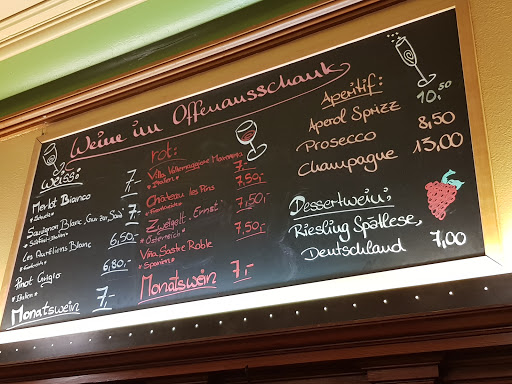 Weine im Offenausschank
weiss:
Merlot Bianco 7.-
Sauvignon Blanc, 7.-
Les Auréliens Blanc 6,50.-
*Frankreich*
Pinot Grigio 6,80.-
*Italien*
Monatswein 7.-
rot:
Villa Vallemaggiore Maremma 7.-
*Italien*
Château les Pins 7,50.-
*Frankreich*
Zweigelt "Ernst" 7,50.-
*Österreich*
Viña Sastre Roble 7,50.-
*Spanien*
Monatswein 7.-
Aperitif:
Aperol Sprizz 10,50
Prosecco 8,50
Champagne 13,00
Dessertwein:
Riesling Spätlese,
Deutschland 7,00